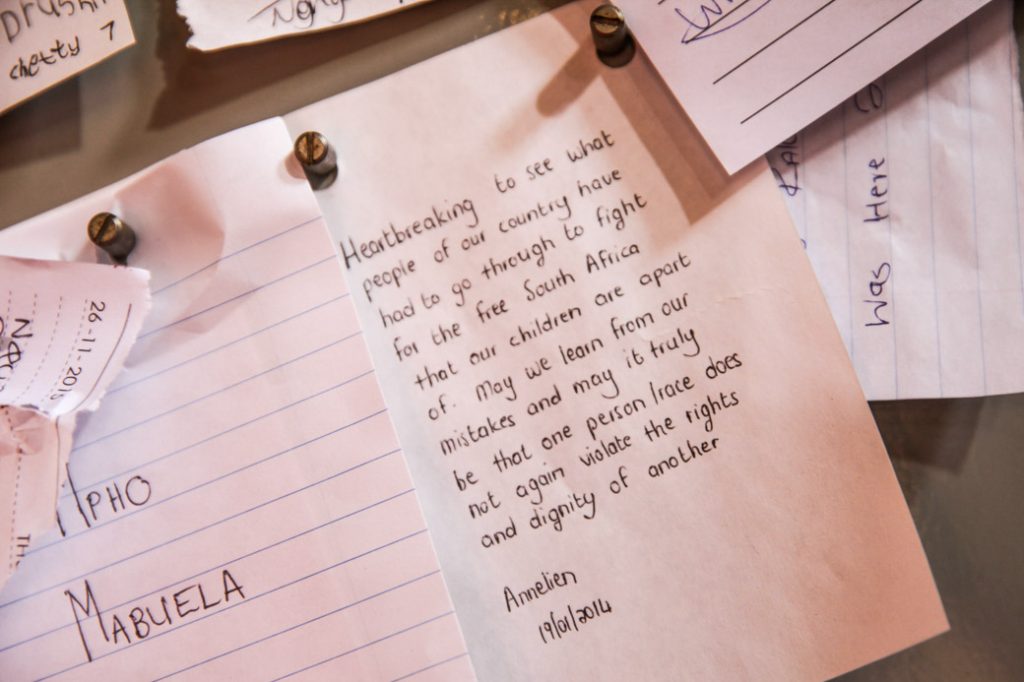 chetty 7
Heartbreaking to see what
people of our country have
had to go through to fight
for the free South Africa
that our children are apart
of. May we learn from our
mistakes and may it truly
be that one person/race does
not again violate the rights
and dignity of another
Annelien
19/01/2014
MPHO
MABUELA
26-11-2015
Was Here